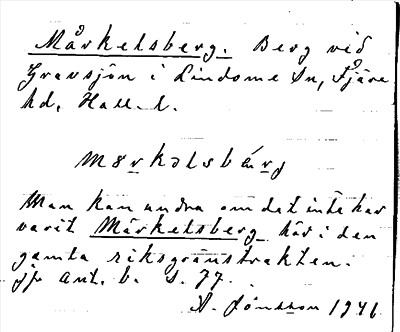 Mårkelsberg. Berg vid
Gravsjön i Lindome Sn, Fjäre
hd, Hall. l.
mørkəlsbærj
Man kan undra om det inte har
varit Märkelsberg här i den
gamla riksgränstrakten.
jfr Ant. b. s. 77.
A. Jönsson 1946